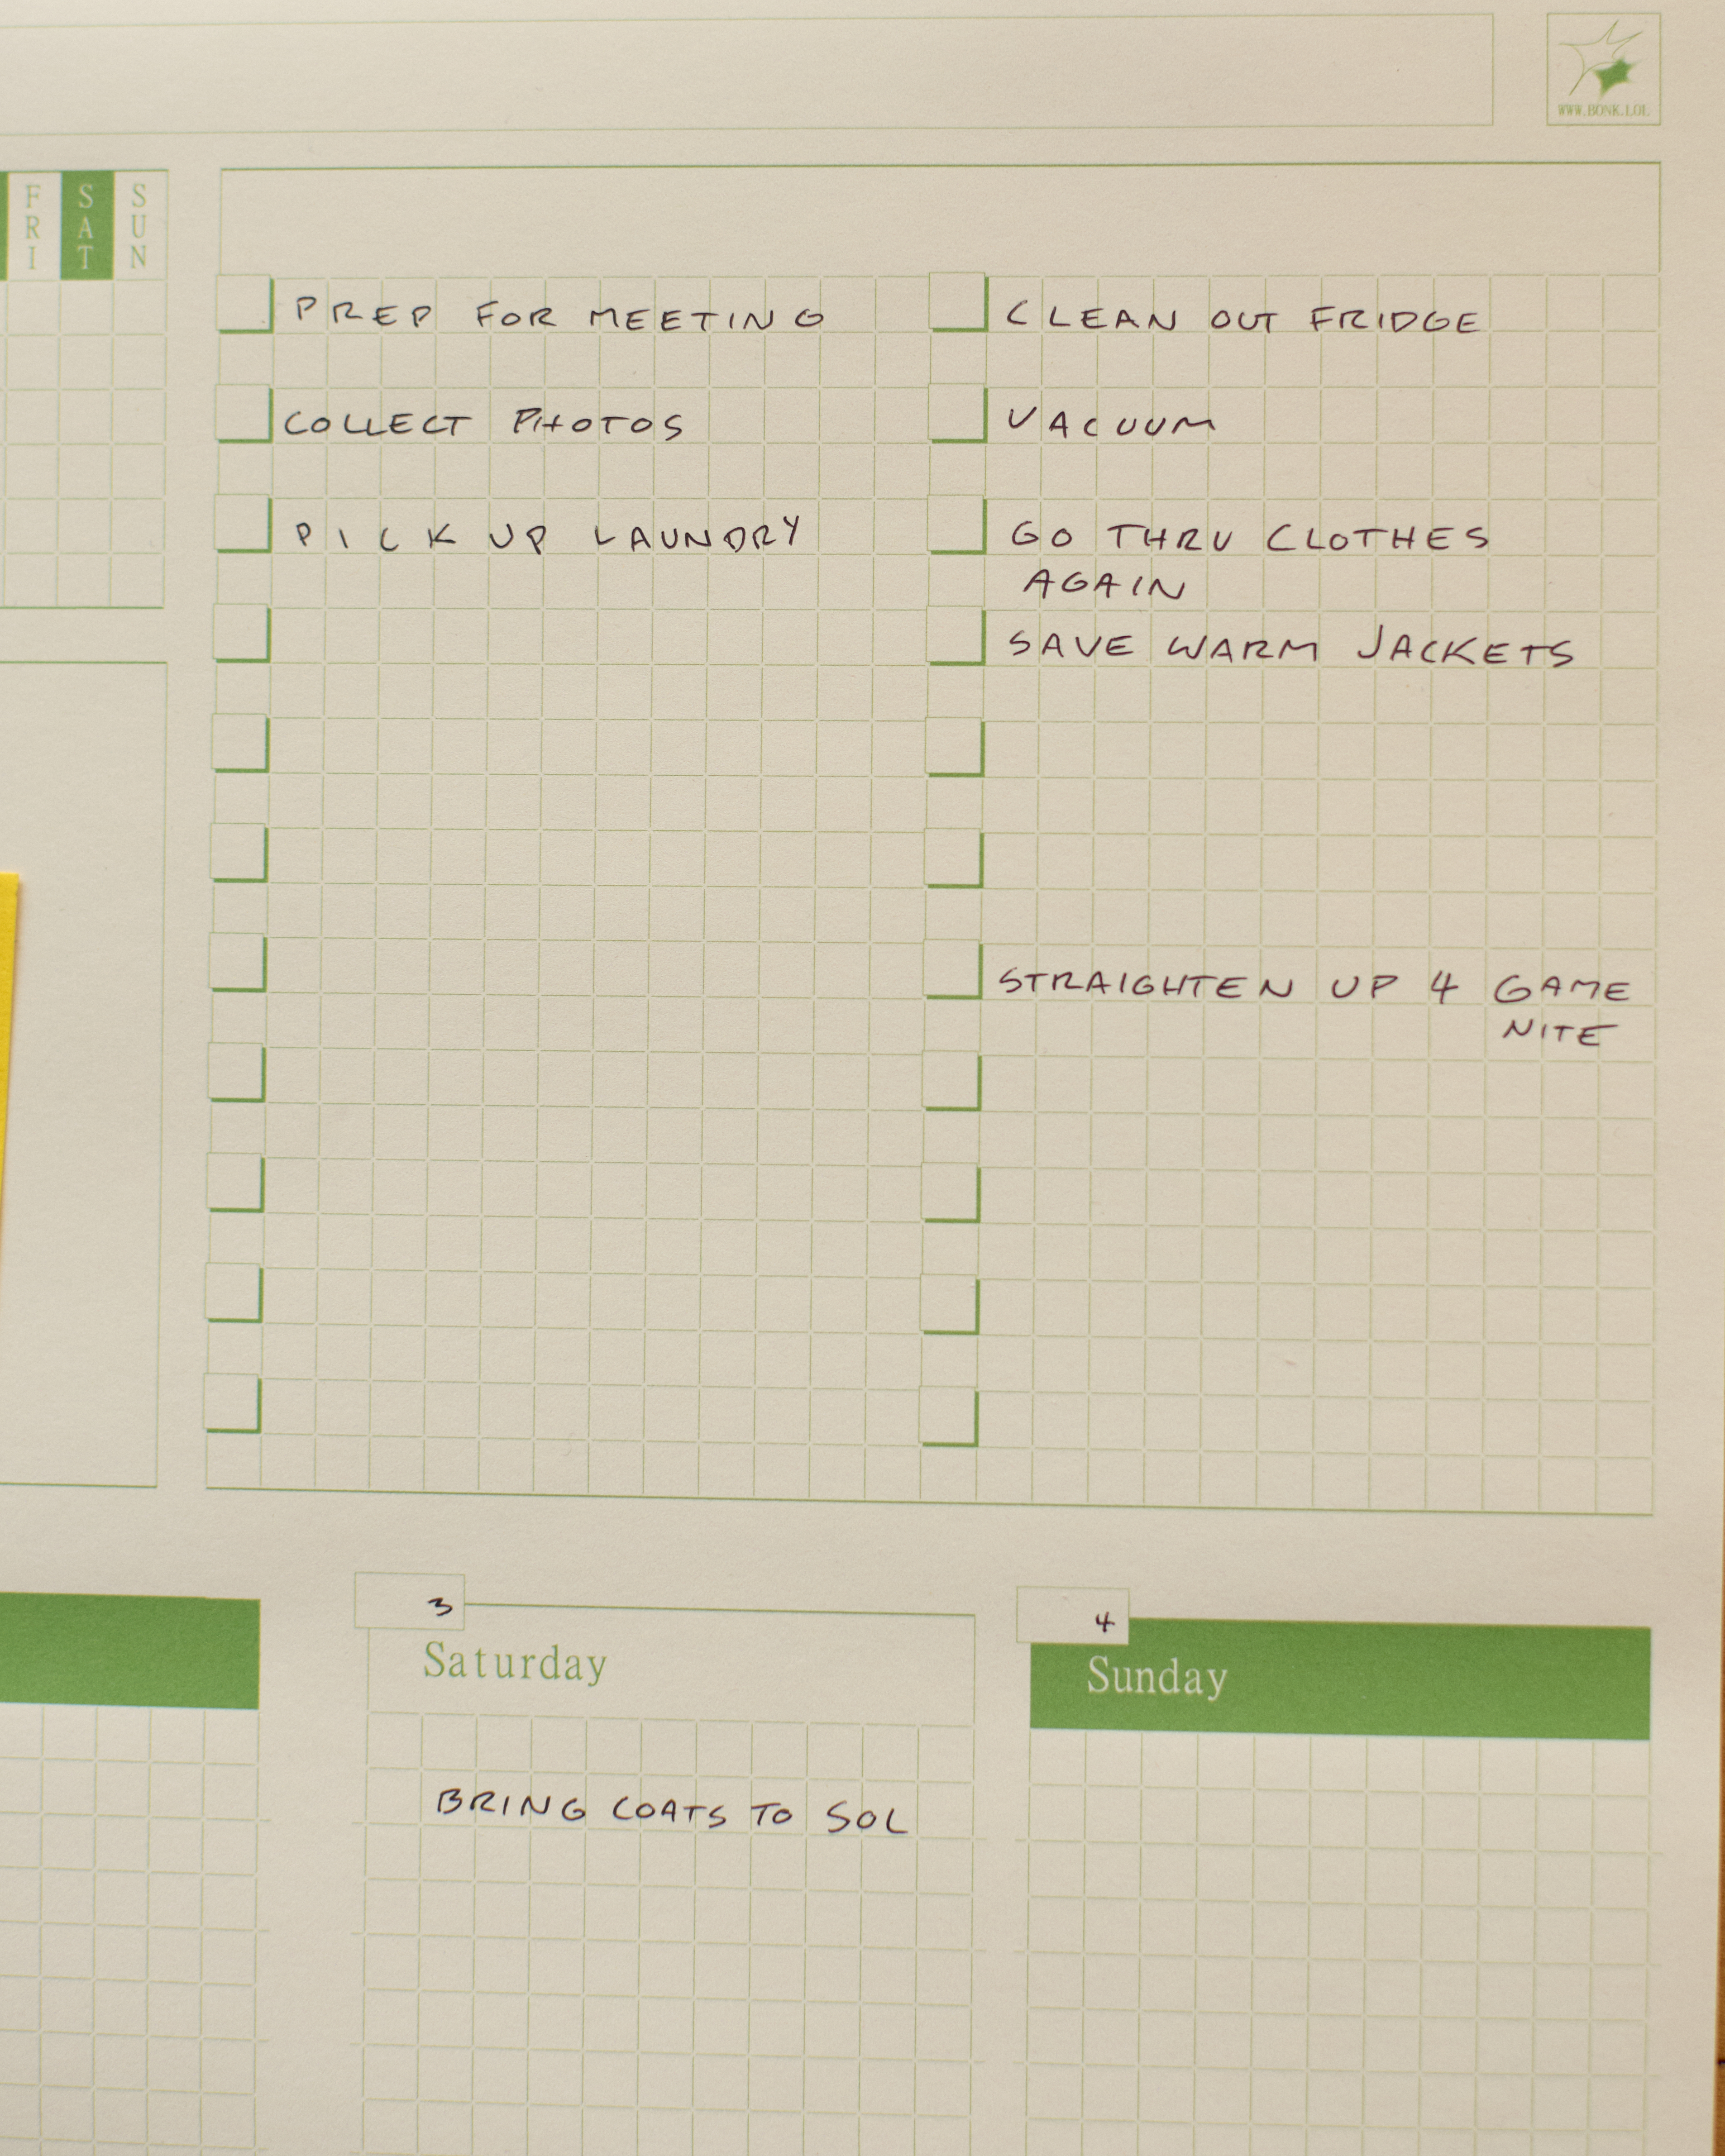 WWW.BONK.LOL
FRI
SAT
SUN
PREP FOR MEETING
COLLECT PHOTOS
PICK UP LAUNDRY
CLEAN OUT FRIDGE
VACUUM
GO THRU CLOTHES
AGAIN
SAVE WARM JACKETS
STRAIGHTEN UP 4 GAME
NITE
3
Saturday
BRING COATS TO SOL
4
Sunday